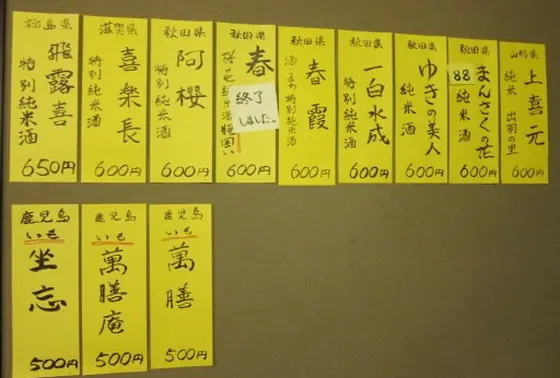 福島県
飛露喜
特別純米酒
650円
滋賀県
喜楽長
特別純米酒
600円
秋田県
阿櫻
特別純米酒
600円
秋田県
春
終了
しました。
600円
秋田県
春霞
特別純米酒
600円
秋田県
一白水成
特別純米酒
600円
秋田県
ゆきの美人
純米酒
600円
秋田県
まんさくの花
88
純米酒
600円
山形県
上喜元
純米
出羽の里
600円
鹿児島
いも
坐忘
500円
鹿児島
いも
萬膳庵
500円
鹿児島
いも
萬膳
500円